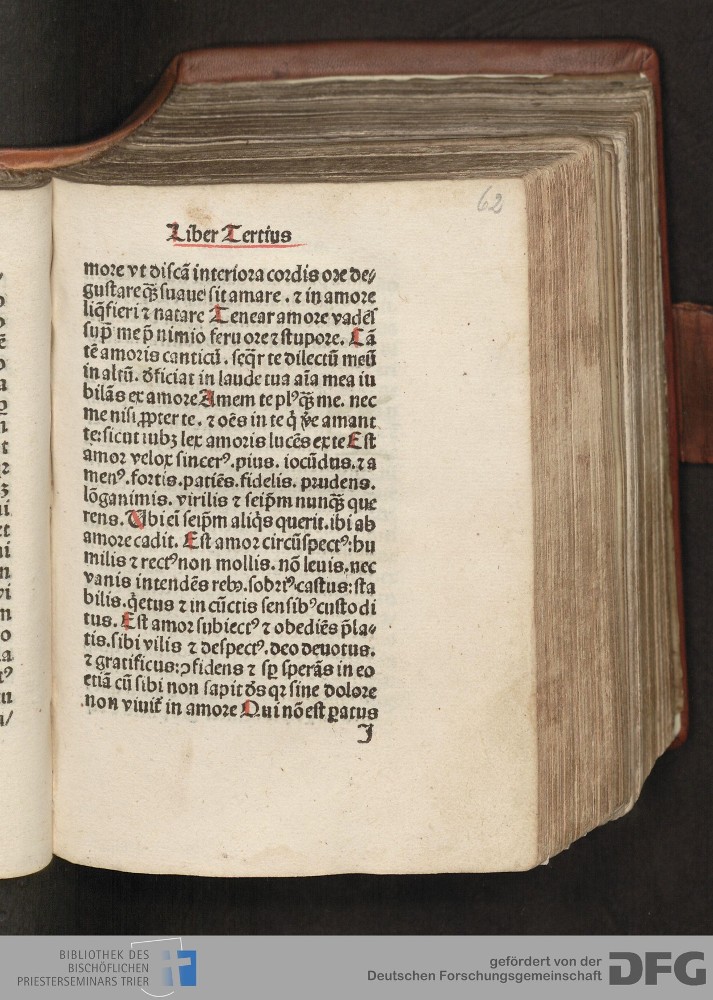 62
Liber Tertius
more vt discã interiora cordis ore de⸗
gustare qȝ̃ suaue sit amare . ⁊ in amore
liq̃fieri ⁊ natare Tenear amore vadẽs
sup̃ me p̃ nimio feruore ⁊ stupore. Cã
tẽ amoris canticũ . seq̃r te dilectũ meũ
in altũ. d̃ficiat in laude tua aĩa mea iu
bilãs ex amore Amem te plꝰqȝ̃ me. nec
me nisi ꝓpter te . ⁊ oẽs in te q̇ ṽe amant
te: sicut iubȝ lex amoris lucẽs ex te Est
amor velox sincerꝰ. pius. iocũdus. ⁊ a
menꝰ. fortis. patiẽs. fidelis. prudens.
lõganimis. virilis ⁊ seip̃m nunqȝ̃ que
rens. Vbi eĩ seip̃m aliq̇s querit. ibi ab
amore cadit. Est amor circũspectꝰ: hu
milis ⁊ rectꝰ non mollis. nõ leuis. nec
vanis intendẽs rebꝰ. sobriꝰ castus: sta
bilis. q̇etus ⁊ in cũctis sensibꝰ custodi
tus. Est amor subiectꝰ ⁊ obediẽs p̃la⸗
tis. sibi vilis ⁊ despectꝰ. deo deuotus.
⁊ gratificus: ꝯfidens ⁊ sp̱ sperãs in eo
etiã cũ sibi non sapit ds̃ qꝛ sine dolore
non viuit̃ in amore Qui nõ est ꝑatus
I
BIBLIOTHEK DES
BISCHÖFLICHEN
PRIESTERSEMINARS TRIER
gefördert von der
Deutschen Forschungsgemeinschaft
DFG